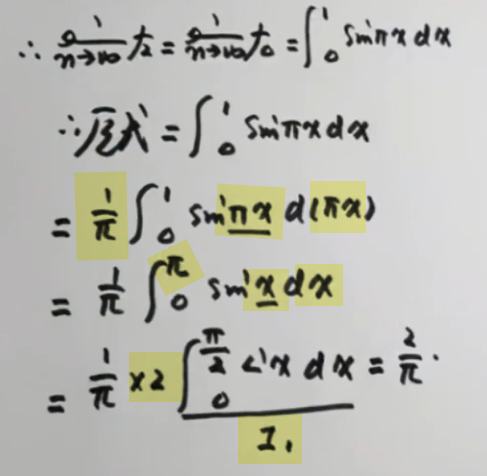 ∴ lim n→∞ f₂ = lim n→∞ f₀ = ∫₀¹ sinπx dx
∴ 原式 = ∫₀¹ sinπx dx
= 1/π ∫₀¹ sinπx d(πx)
= 1/π ∫₀^π sin x dx
= 1/π ×2 ∫₀^(π/2) x dx = 2/π.
1.